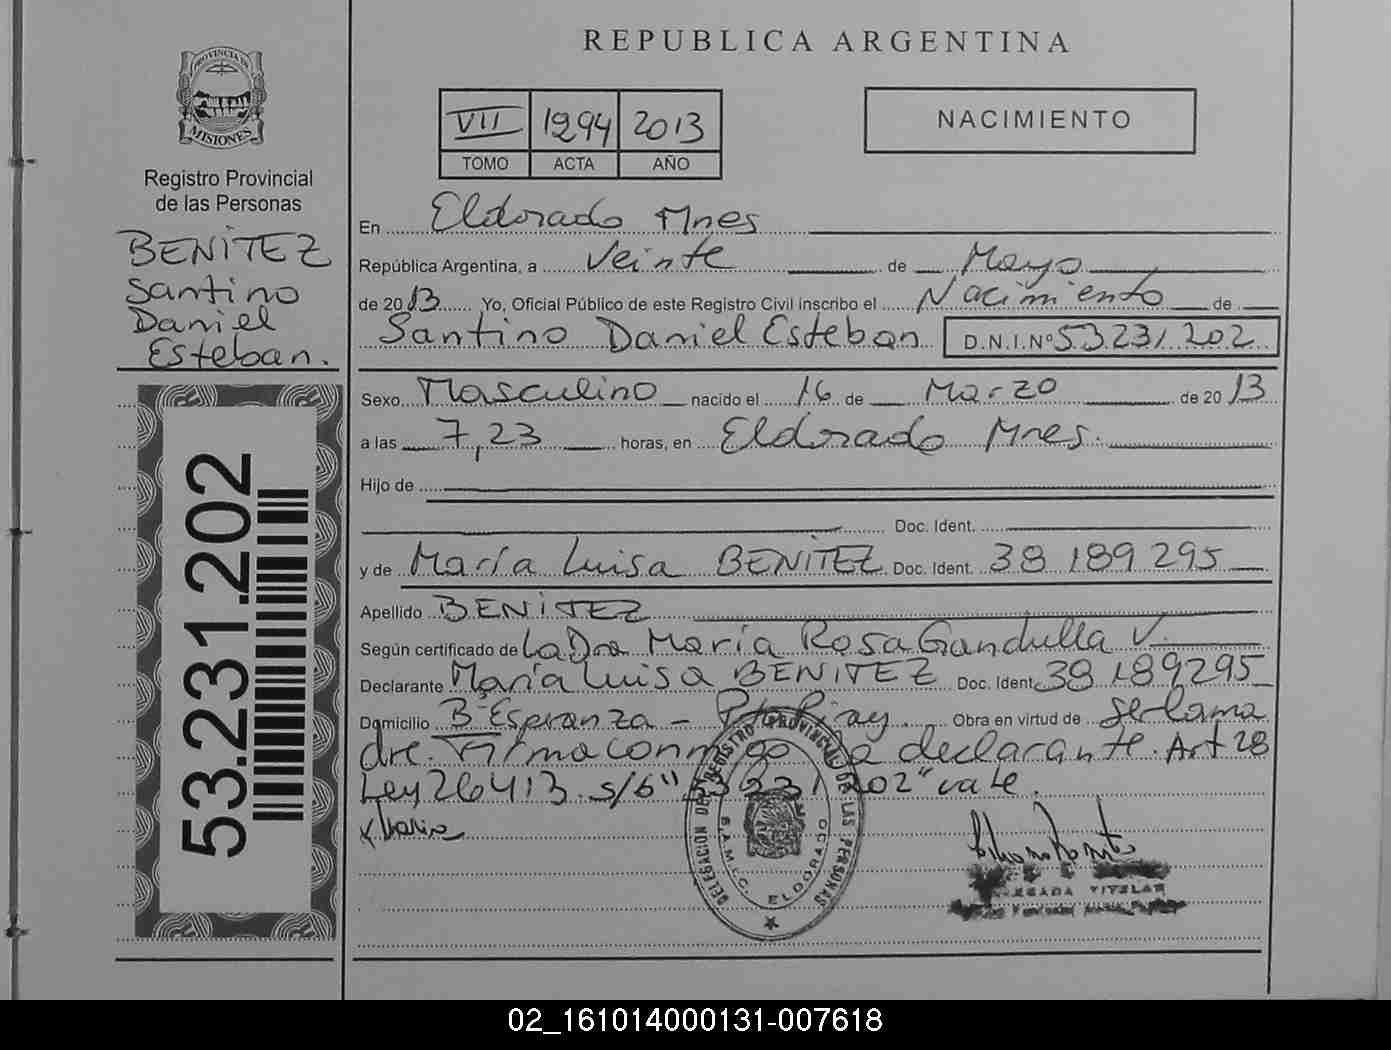 REPUBLICA ARGENTINA
PROVINCIA DE
MISIONES
Registro Provincial
de las Personas
BENITEZ
Santino
Daniel
Esteban.
53.231.202
VII 1294 2013
TOMO ACTA AÑO
NACIMIENTO
En Eldorado Mnes
República Argentina, a Veinte de Mayo
de 2013 Yo, Oficial Público de este Registro Civil inscribo el Nacimiento de
Santino Daniel Esteban D.N.I.Nº 53231202
Sexo Masculino nacido el 16 de Marzo de 2013
a las 7,23 horas, en Eldorado Mnes.
Hijo de
Doc. Ident.
y de María Luisa BENITEZ Doc. Ident. 38 189 295
Apellido BENITEZ
Según certificado de La Dra María Rosa Gandulla V.
Declarante María Luisa BENITEZ Doc. Ident. 38 189295
Domicilio Bº Esperanza - Pto Piray. Obra en virtud de ser la ma
dre. Firma conmigo la declarante. Art 28
Ley 26413. s/b "53231202" vale.
DELEGACION DEL REGISTRO PROVINCIAL DE LAS PERSONAS
ELDORADO
TITULAR
02_161014000131-007618